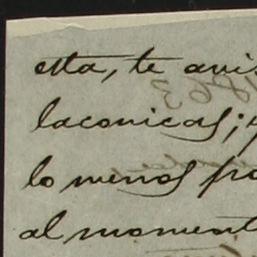 esta, te avis
laconicas; y
lo menos po
al moment